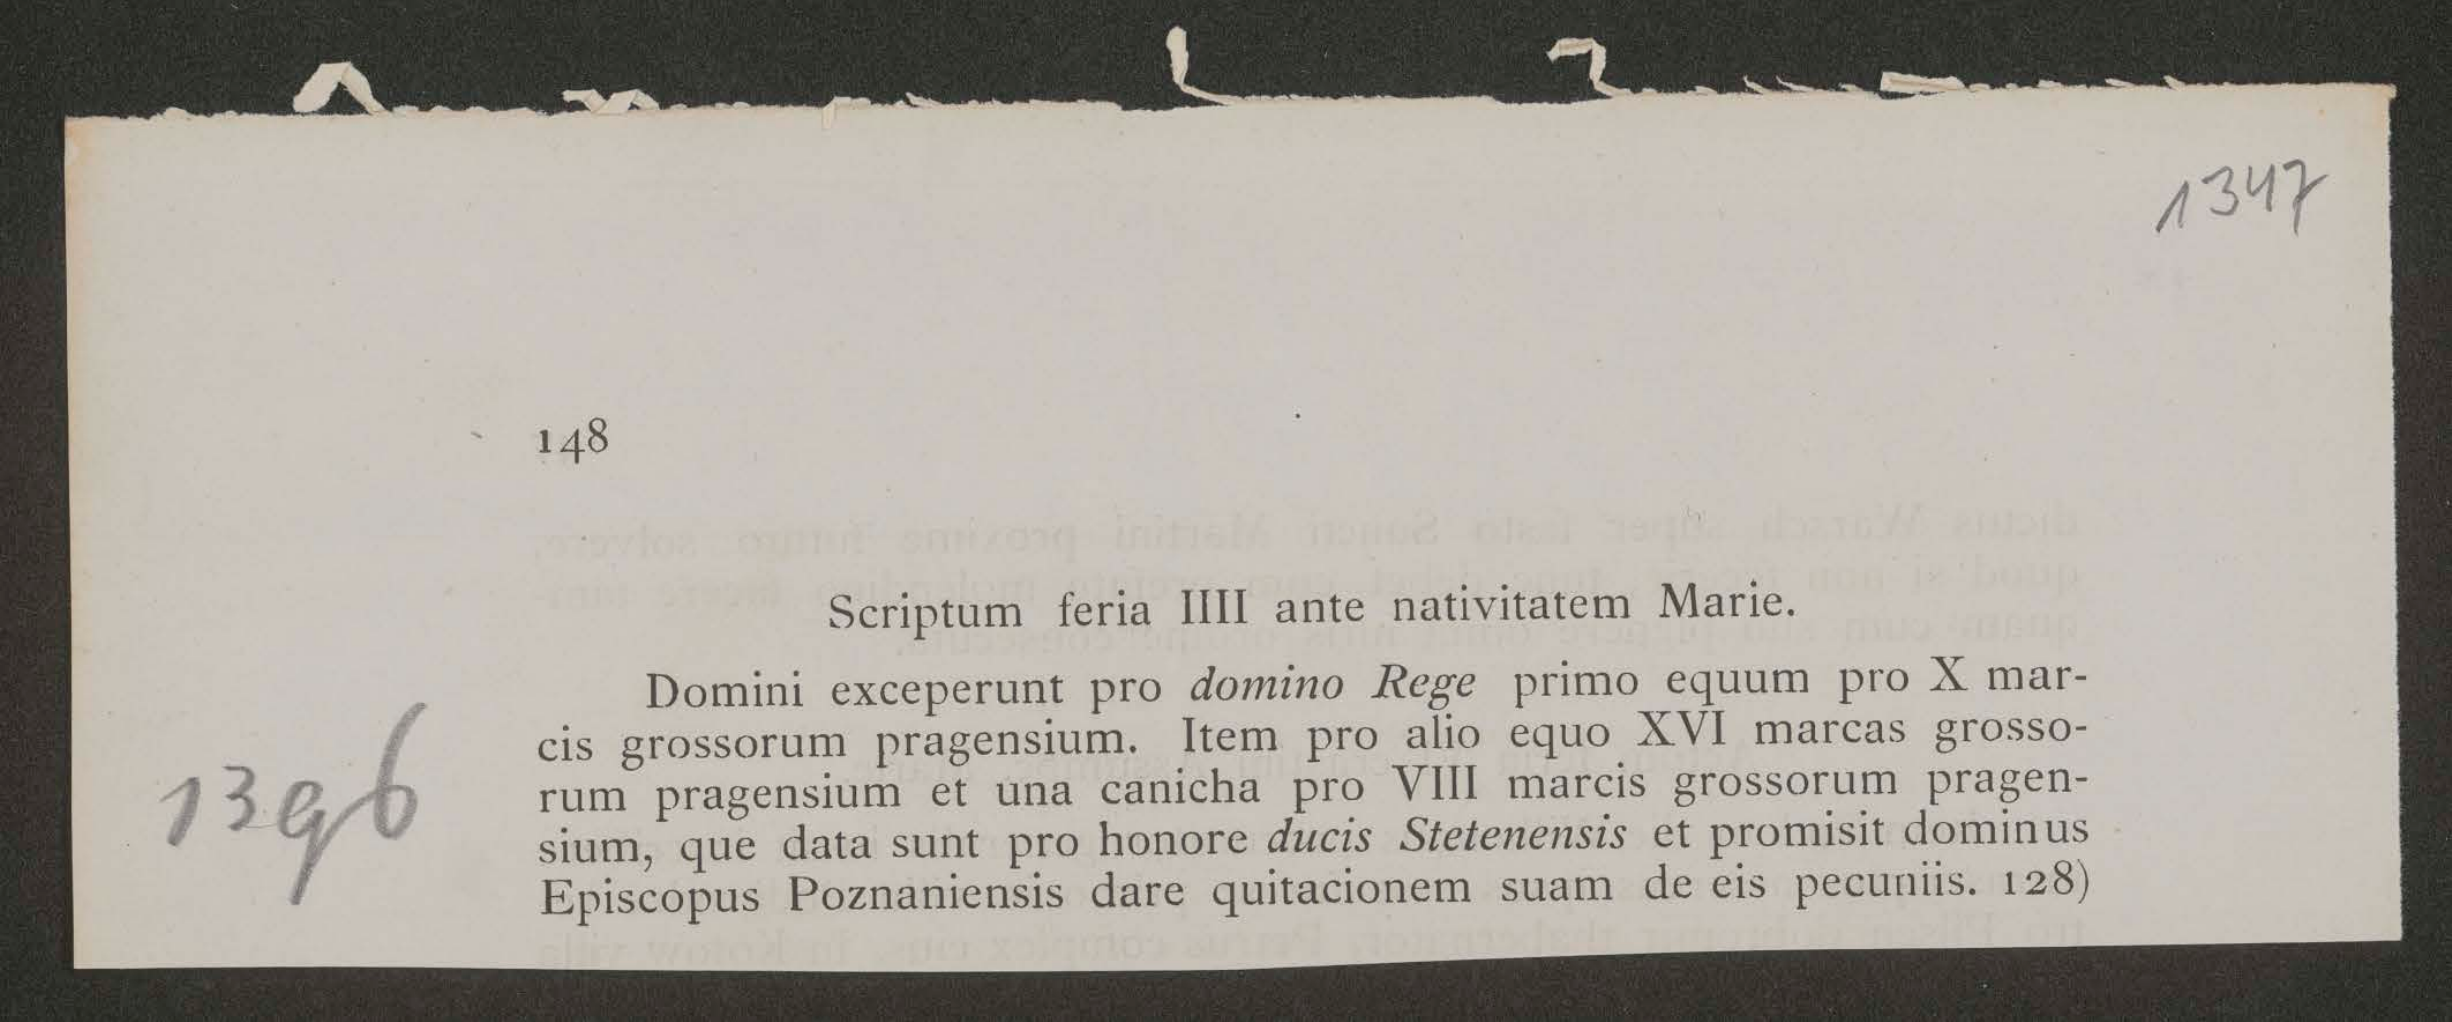 1347
148
Scriptum feria IIII ante nativitatem Marie.
Domini exceperunt pro domino Rege primo equum pro X mar-
cis grossorum pragensium. Item pro alio equo XVI marcas grosso-
rum pragensium et una canicha pro VIII marcis grossorum pragen-
1396
sium, que data sunt pro honore ducis Stetenensis et promisit dominus
Episcopus Poznaniensis dare quitacionem suam de eis pecuniis. 128)